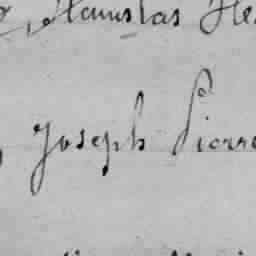 , Stanislas He
, Joseph Pierre